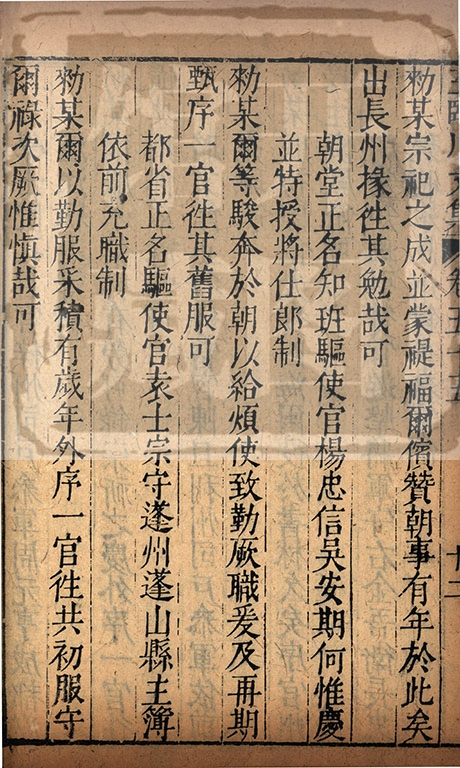 王臨川文集 卷五十五 十二
勑某宗祀之成並蒙禔福爾儐贊朝事有年於此矣
出長州掾徃其勉哉可
朝堂正名知班驅使官楊忠信吳安期何惟慶
並特授將仕郎制
勑某爾等駿奔於朝以給煩使致勤厥職爰及再期
甄序一官徃其舊服可
都省正名驅使官袁士宗守蓬州蓬山縣主簿
依前充職制
勑某爾以勤服采積有歲年外序一官徃共初服守
爾祿次厥惟慎哉可